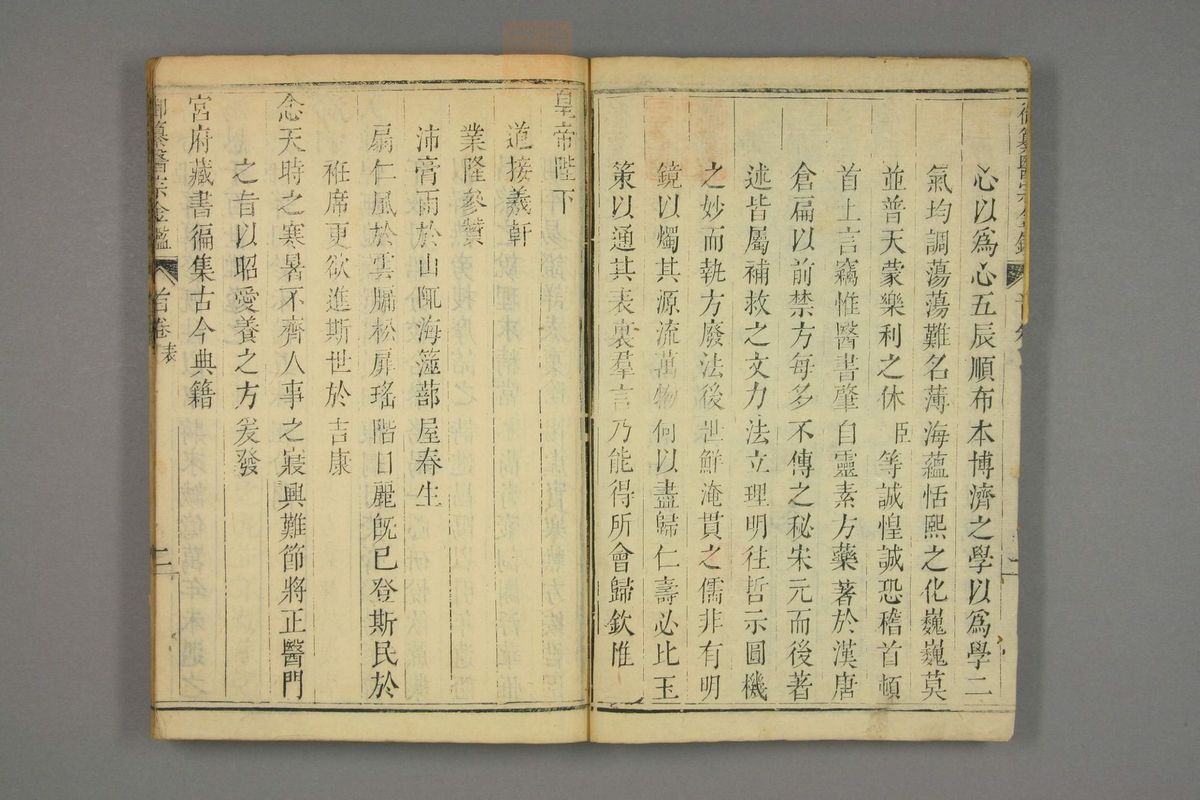 心以爲心五辰順布本博濟之學以爲學二
氣均調蕩蕩難名薄海蘊恬熙之化巍巍莫
並普天蒙樂利之休臣等誠惶誠恐稽首頓
首上言竊惟醫書肇自靈素方藥著於漢唐
倉扁以前禁方每多不傳之秘宋元而後著
述皆屬補救之文力法立理明往哲示圓機
之妙而執方廢法後世鮮淹貫之儒非有明
鏡以燭其源流萬物何以盡歸仁壽必比玉
策以通其表裏羣言乃能得所會歸欽惟
皇帝陛下
道接羲軒
業隆參贊
沛膏雨於山陬海澨蔀屋春生
扇仁風於雲牖松扉瑤階日麗旣已登斯民於
袵席更欲進斯世於吉康
念天時之寒暑不齊人事之寢興難節將正醫門
之旨以昭愛養之方爰發
宮府藏書徧集古今典籍
御纂醫宗金鑑 首卷 表 二